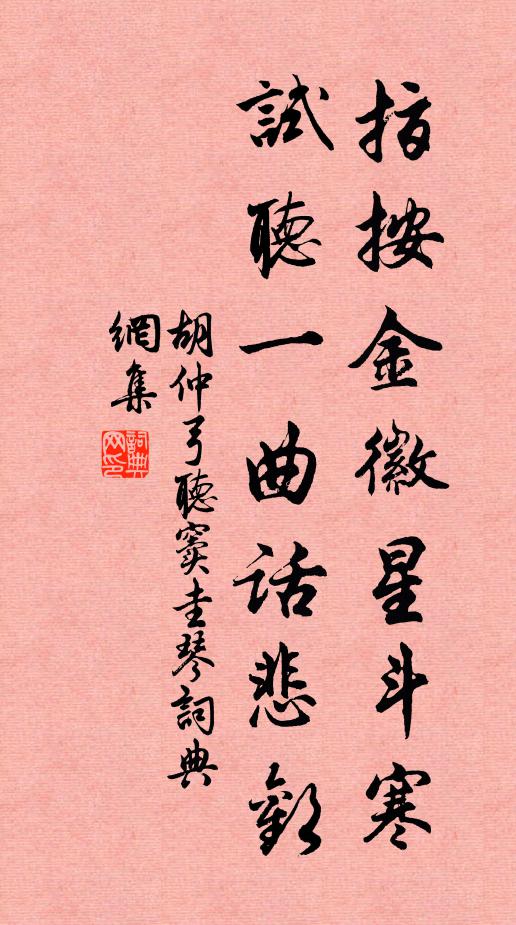 指按金徽星斗寒
試聽一曲話悲歡
胡仲弓聽竇圭琴詞典
網集
詞典网印